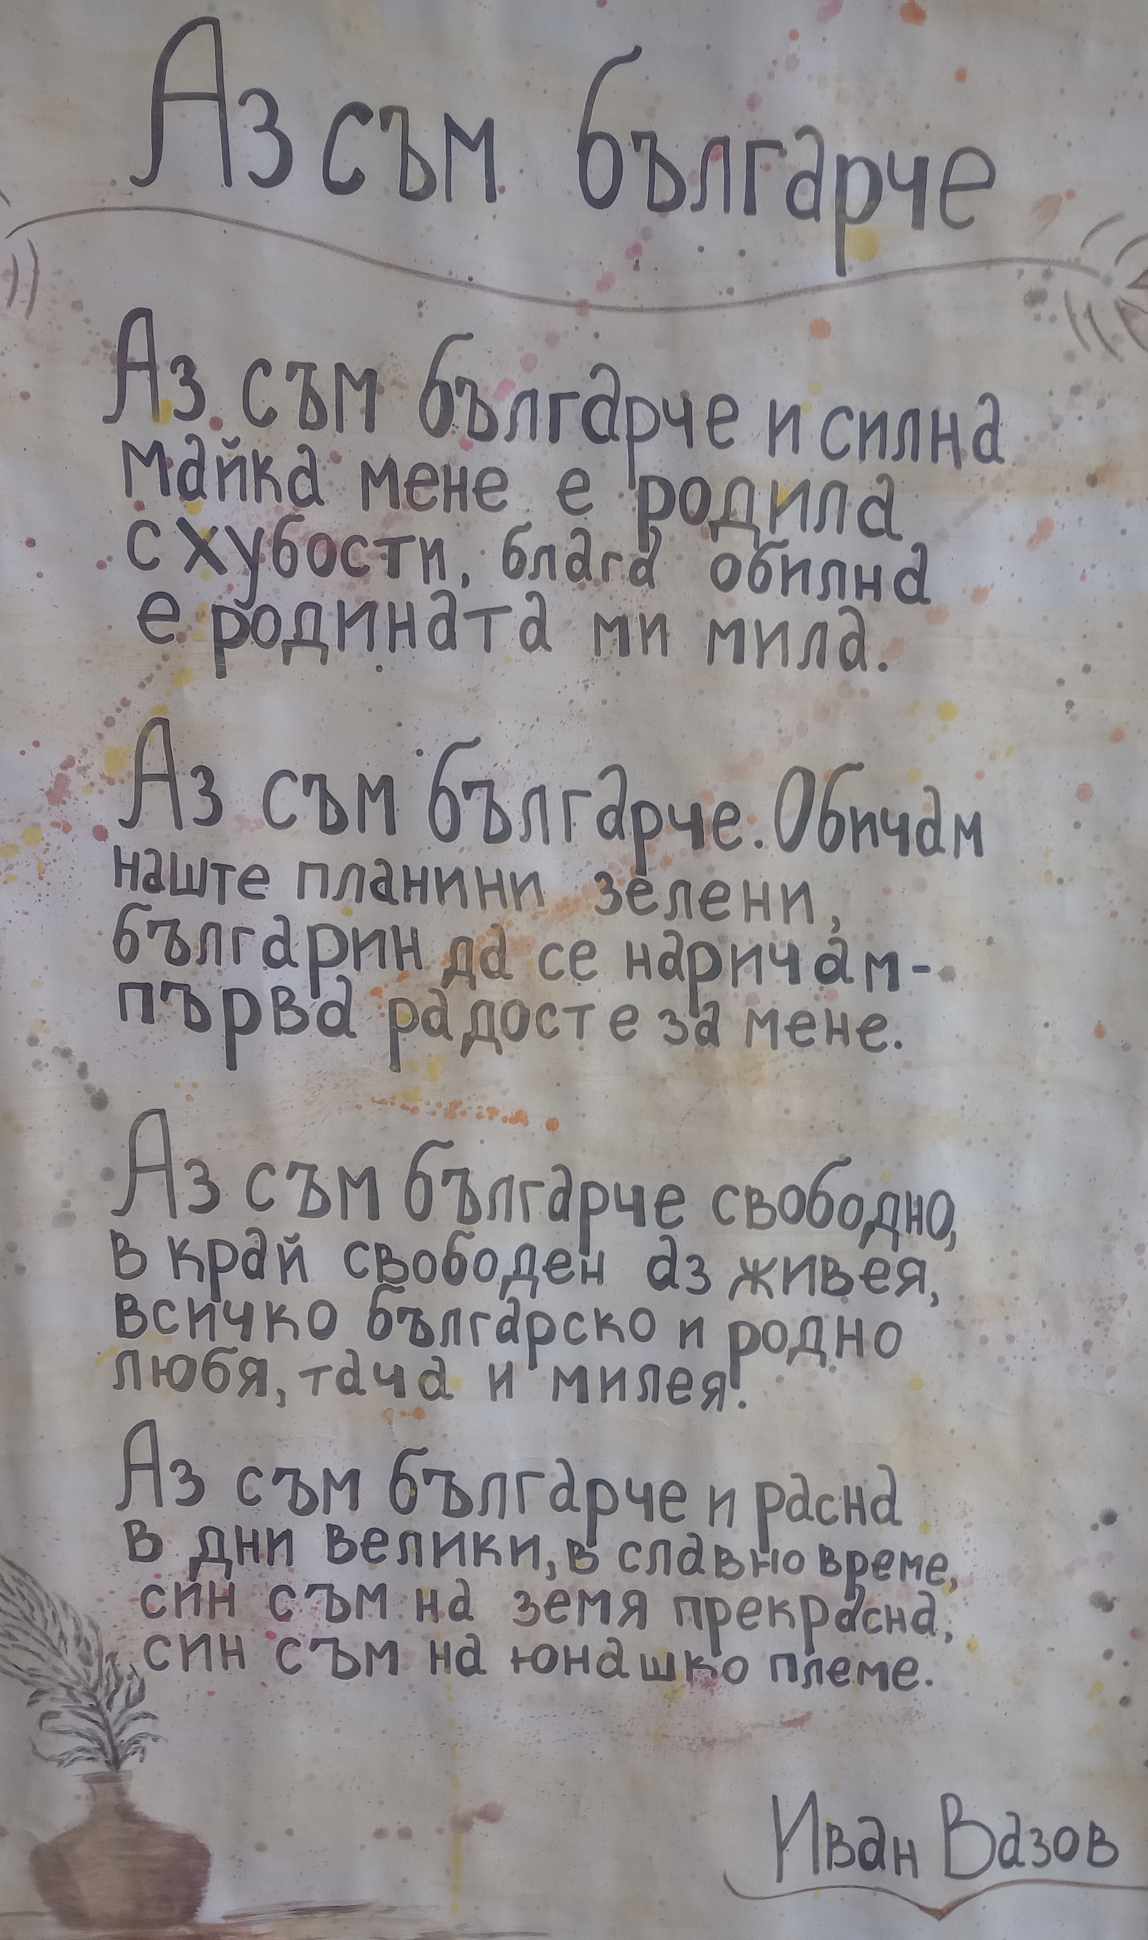 Аз съм българче
Аз съм българче и силна
майка мене е родила
с хубости, блага обилна
е родината ми мила.
Аз съм българче. Обичам
наште планини зелени,
българин да се наричам-
първа радост е за мене.
Аз съм българче свободно,
в край свободен аз живея,
всичко българско и родно
любя, тача и милея.
Аз съм българче и расна
в дни велики, в славно време,
син съм на земя прекрасна,
син съм на юнашко племе.
Иван Вазов